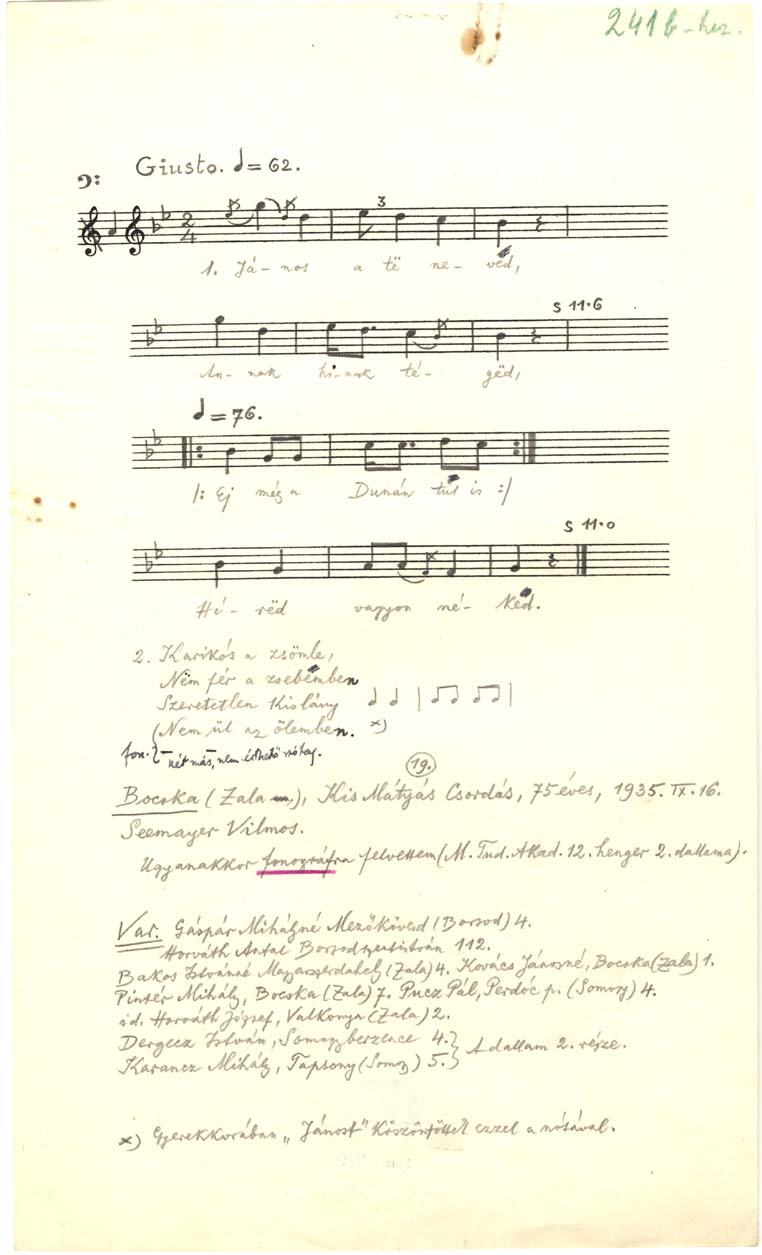 241 b-hez.
Giusto. ♩= 62.
2/4 3
1. Já- nos a të ne- vĕd,
S 11·6
An- nak hí-nak té- gëd,
♩= 76.
/: Ej még a Dunán túl is :/
S 11·0
Hí- rëd vagyon né- kĕd.
2. Karikós a zsömle,
Nëm fér a zsebëmben
Szeretetlen kislány
(Nem ül az ölemben. x)
fon.
19.
Bocska (Zala m.), Kis Mátyás Csordás, 75 éves, 1935. IX. 16.
Seemayer Vilmos.
Ugyanakkor fonográfra felvettem (M. Tud. Akad. 12. henger 2. dallama).
Var. Gáspár Mihályné Mezőkövesd (Borsod) 4.
Horváth Antal Borsodszentistván 112.
Bakos Istvánné Magyarszerdahely (Zala) 4. Kovács Jánosné, Bocska (Zala) 1.
Pintér Mihály, Bocska (Zala) 7. Pucz Pál, Perdóc p. (Somogy) 4.
id. Horváth József, Valkonya (Zala) 2.
Dergecz István, Somogyberzence 4.} A dallam 2. része.
Karancz Mihály, Tapsony (Somogy) 5.}
x) Gyerekkorában „Jánost" köszöntöttek ezzel a nótával.